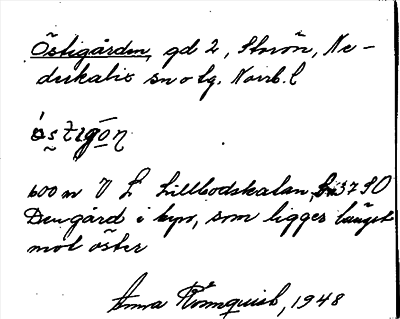 Östigården, gd 2, Storön, Ne-
derkalix sn o tg. Norrb. l
600 m V L Lillbodskatan, 3790
Den gård i byn, som ligger längst
mot öster
Anna Rönnquist, 1948